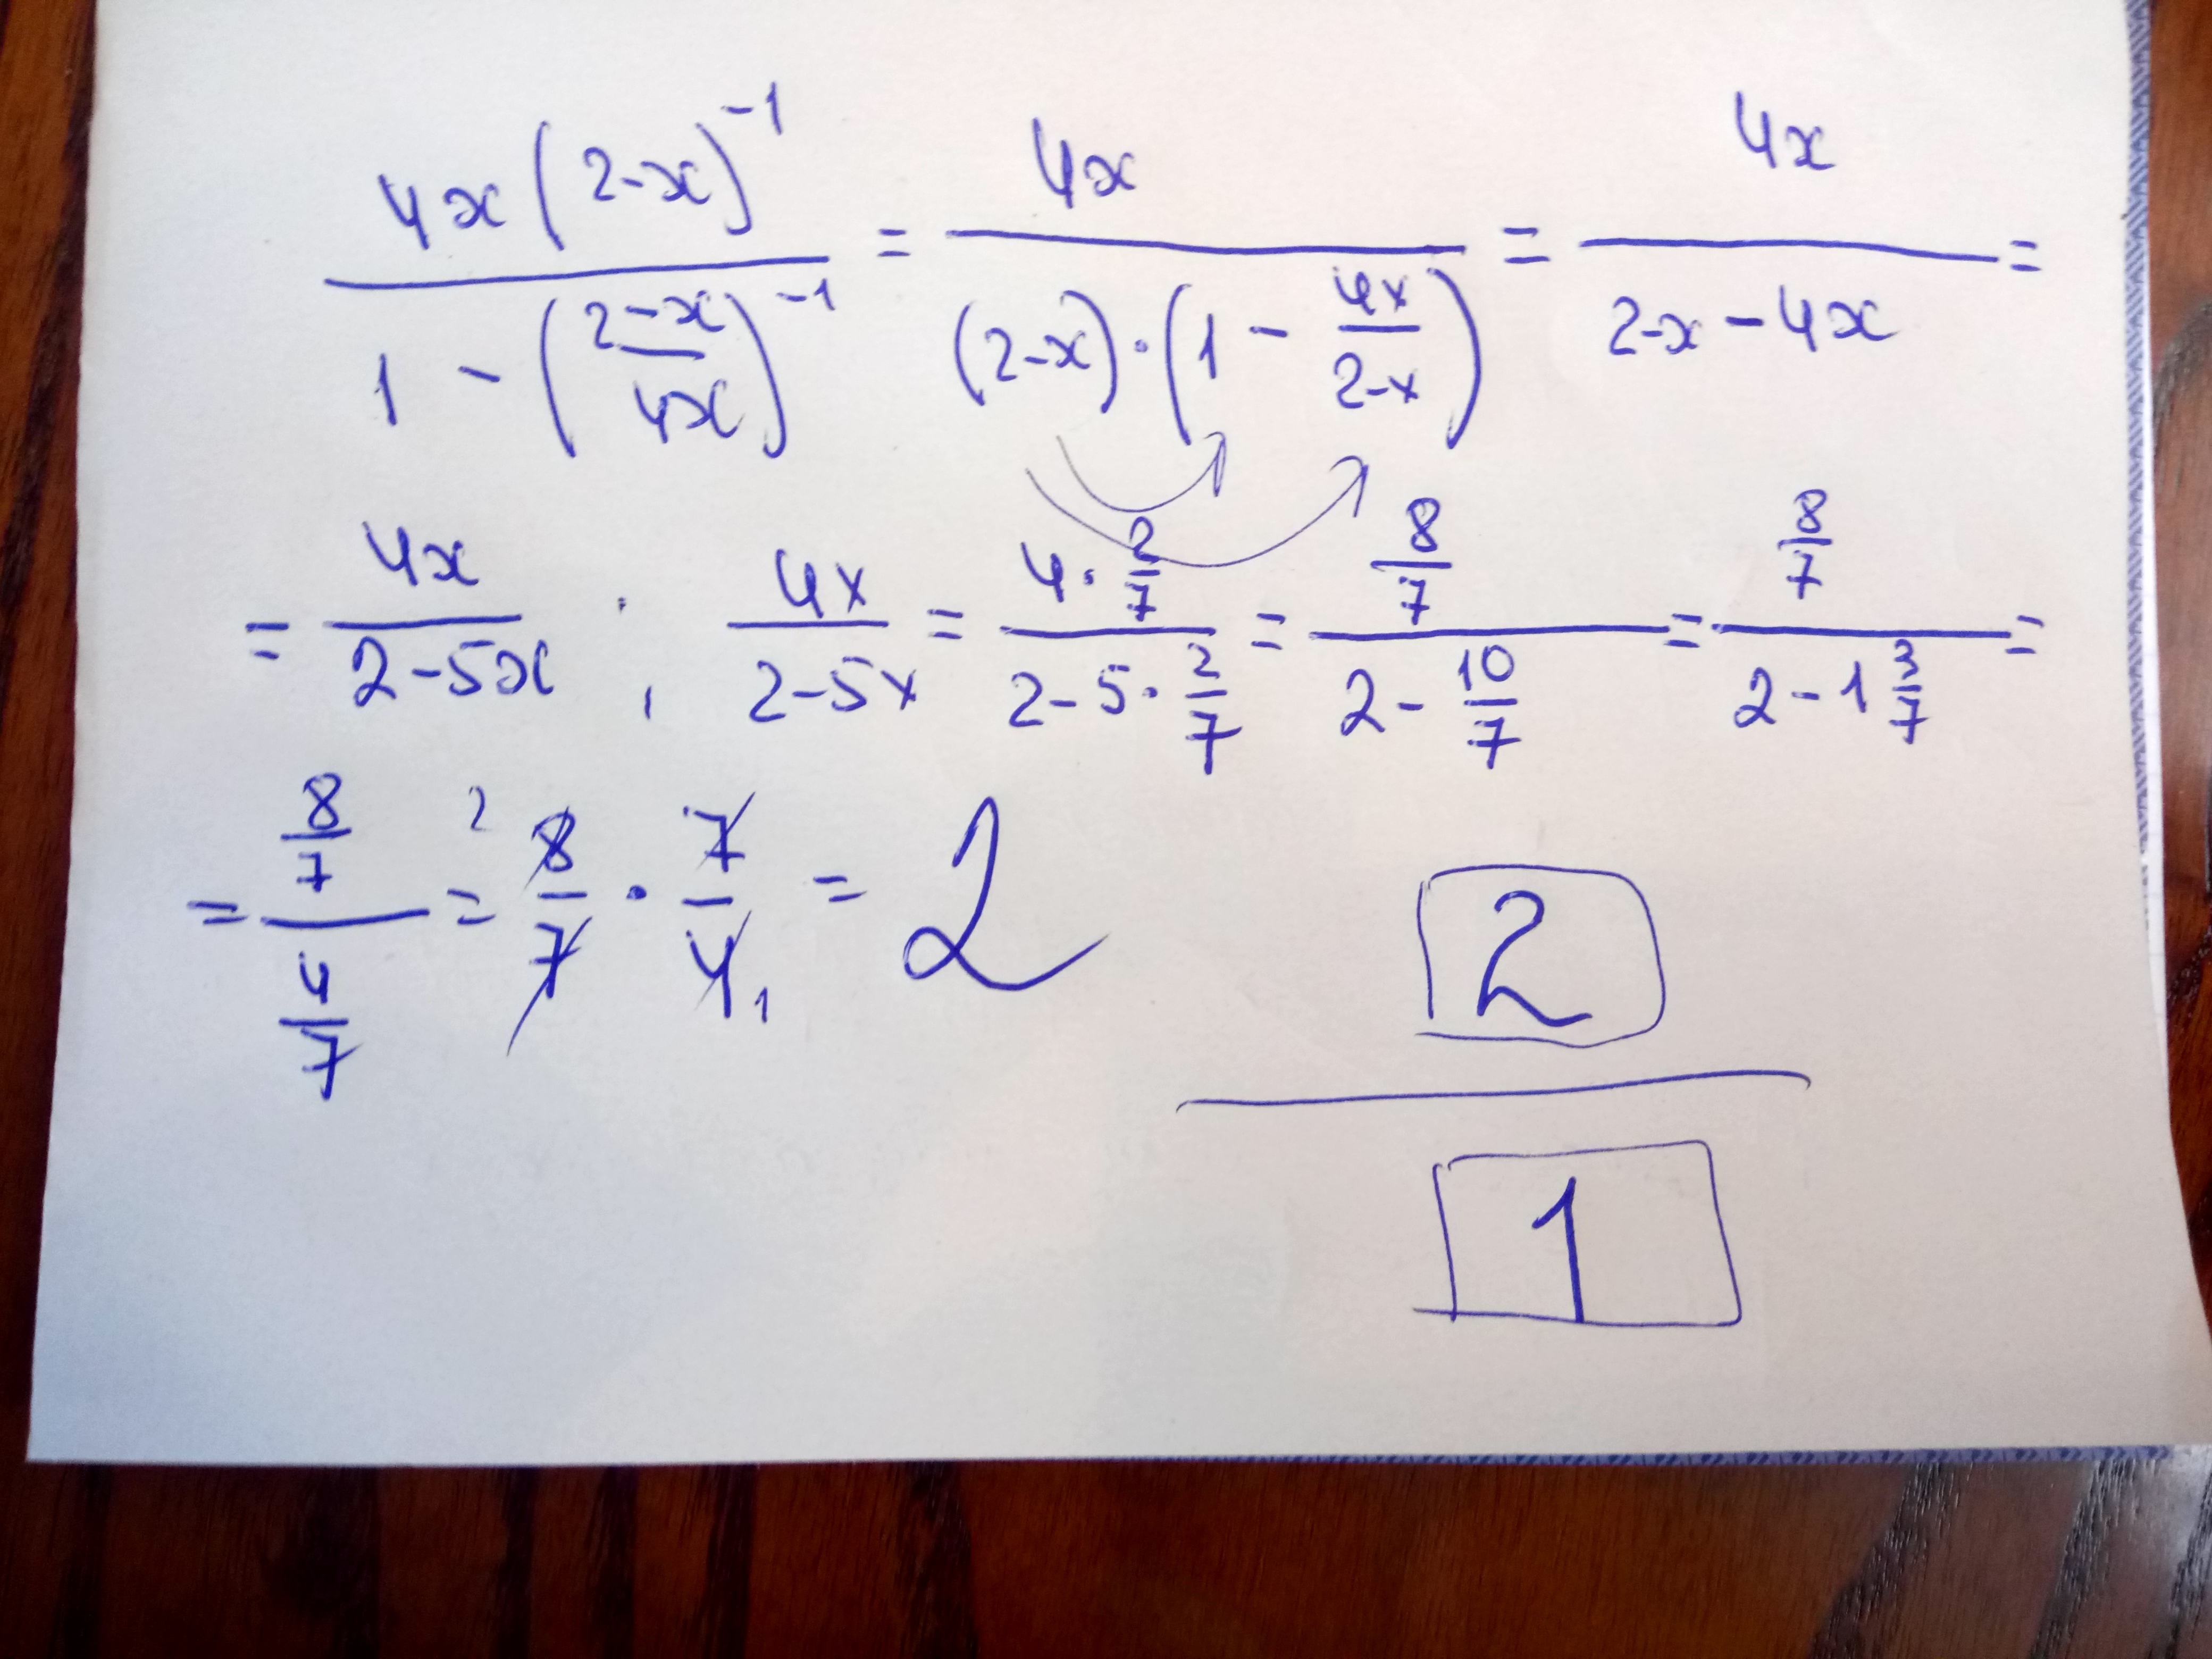 4x(2-x)^{-1} / (1 - ((2-x)/(4x))^{-1}) = 4x / ((2-x)·(1 - 4x/(2-x))) = 4x / (2-x-4x) =
= 4x / (2-5x) ; 4x / (2-5x) = (4·2/7) / (2-5·2/7) = (8/7) / (2-10/7) = (8/7) / (2-1 3/7) =
= (8/7) / (4/7) = 2 8/7 · 7/4 1 = 2
2
1